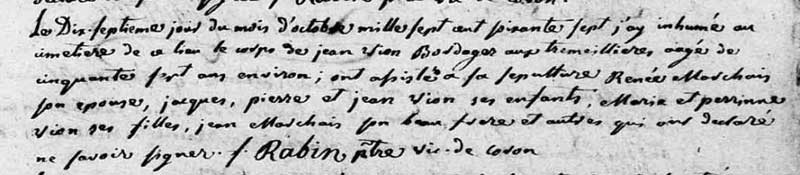 Le Dix-septieme jour du mois d'octobre mille sept cent soixante sept j'ay inhumé au
cimetiere de ce lieu le corps de jean Vion Bordager aux tremeillieres aagé de
cinquante sept ans environ; ont assisté a sa sepulture Renée Marchais
son epouse, jacques, pierre et jean Vion ses enfants, Marie et perrinne
Vion ses filles, jean Marchais son beau frere et autres qui ont declaré
ne savoir signer. f. Rabin ptre vic. de coron